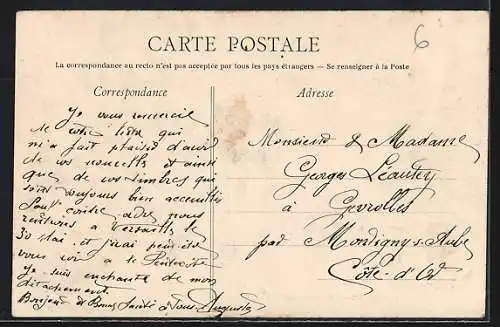 6
CARTE POSTALE
La correspondance au recto n'est pas acceptée par tous les pays étrangers — Se renseigner à la Poste
Correspondance
Adresse
Je vous remercie
de votre lettre qui
m'a fait plaisir d'avoir
de vos nouvelles et ainsi
que de vos timbres qui
sont toujours bien accueillis
contre nous
rentrerons à Versailles le
30 Mai et j'irai
vous voir à la Pentecôte
Je suis enchanté de mon
détachement.
Bonjour et Bonne Santé à Tous Auguste
Monsieur & Madame
Georges Leautey
à Gevrolles
par Montigny-s-Aube
Côte-d'Or